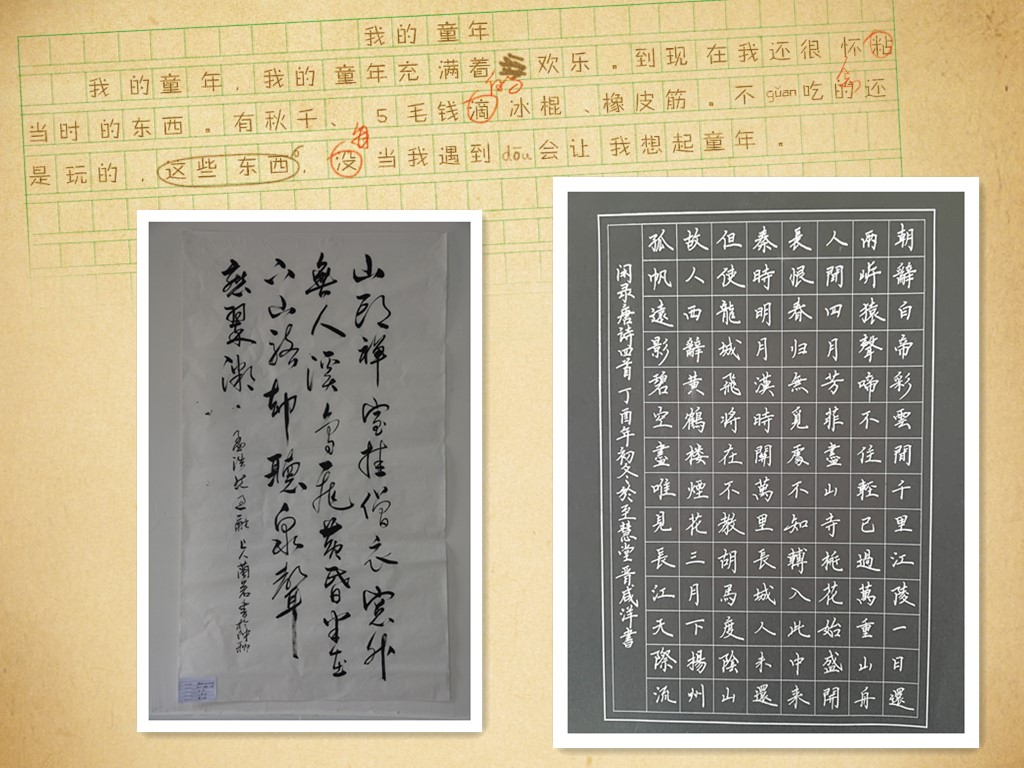 我的童年
我的童年,我的童年充满着欢乐。到现在我还很怀粘
当时的东西。有秋千、5毛钱滴冰棍、橡皮筋。不guǎn吃的还
是玩的,这些东西,没当我遇到dōu会让我想起童年。
的
每
山頭禅室挂僧衣窓外
無人溪鸟飛黄昏半在
下山路却聽泉聲
戀翠微
孟浩然过融上人蘭若書於仲秋
朝辭白帝彩雲間千里江陵一日還
兩岍猿聲啼不住輕已過萬重山舟
人間四月芳菲盡山寺桃花始盛開
長恨春归無覓處不知轉入此中来
秦時明月漢時關萬里長城人未還
但使龍城飛將在不教胡馬度陰山
故人西辭黄鶴楼煙花三月下揚州
孤帆遠影碧空盡唯見長江天際流
闲录唐诗四首 丁酉年初冬於至慧堂晋成洋書